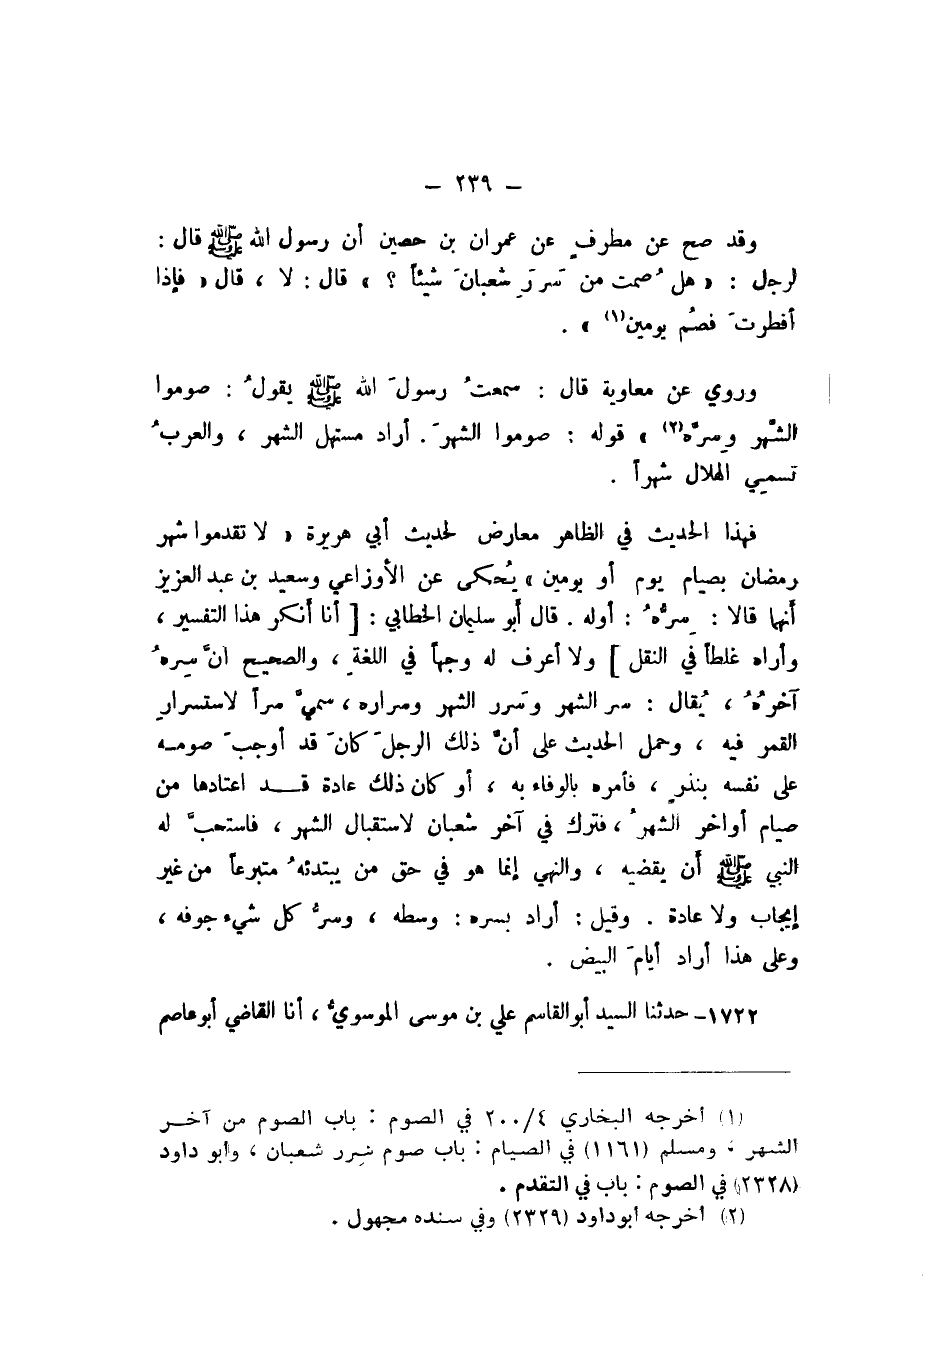 – ٢٣٩ –
وقد صح عن مطرفٍ عن عمران بن حصين أن رسول الله ﷺ قال :
لرجل : « هل ُصمت من َسررَِ شعبانَ شيئاً ؟ » قال : لا ، قال « فإذا
أفطرتَ فصُم يومين(١) » .
وروي عن معاوية قال : سمعتُ رسولَ الله ﷺ يقولُ : صوموا
الشَّهر وسِرَّه(٢) » قوله : صوموا الشهرَ . أراد مستهل الشهر ، والعربُ
تسمِي الهلال شهراً .
فهذا الحديث في الظاهر معارض لحديث أبي هريرة « لا تقدموا شهر
رمضان بصيام يوم أو يومين » يُحكى عن الأوزاعي وسعيد بن عبد العزيز
أنها قالا : سِرُّهُ : أوله . قال أبو سليمان الخطابي : [ أنا أنكر هذا التفسير ،
وأراه غلطاً في النقل ] ولا أعرف له وجهاً في اللغةِ ، والصحيح انَّ سِرهُ
آخرُهُ ، يُقال : سر الشهر وسَرر الشهر وسراره ، سميَّ سراً لاستسرارِ
القمر فيه ، وحمل الحديث على أنَّ ذلك الرجلَ كانَ قد أوجبَ صومــه
على نفسه بنذرٍ ، فأمره بالوفاء به ، أو كان ذلك عادة قـــد اعتادها من
صيام أواخر الشهرُ ، فترك في آخر شعبان لاستقبال الشهر ، فاستحبَّ له
النبي ﷺ أن يقضيه ، والنهي إنما هو في حق من يبتدئهُ متبرعاً من غير
إيجاب ولا عادة . وقيل : أراد بسره : وسطه ، وسرُّ كل شيء جوفه ،
وعلى هذا أراد أيامَ البيض .
١٧٢٢– حدثنا السيد أبو القاسم علي بن موسى الموسويُّ ، أنا القاضي أبو عاصم
(١) أخرجه البخاري ٤/٢٠٠ في الصوم : باب الصوم من آخـر
الشهر ، ومسلم (١١٦١) في الصيام : باب صوم سُرر شعبان ، وأبو داود
(٢٣٢٨) في الصوم : باب في التقدم .
(٢) أخرجه أبو داود (٢٣٢٩) وفي سنده مجهول .